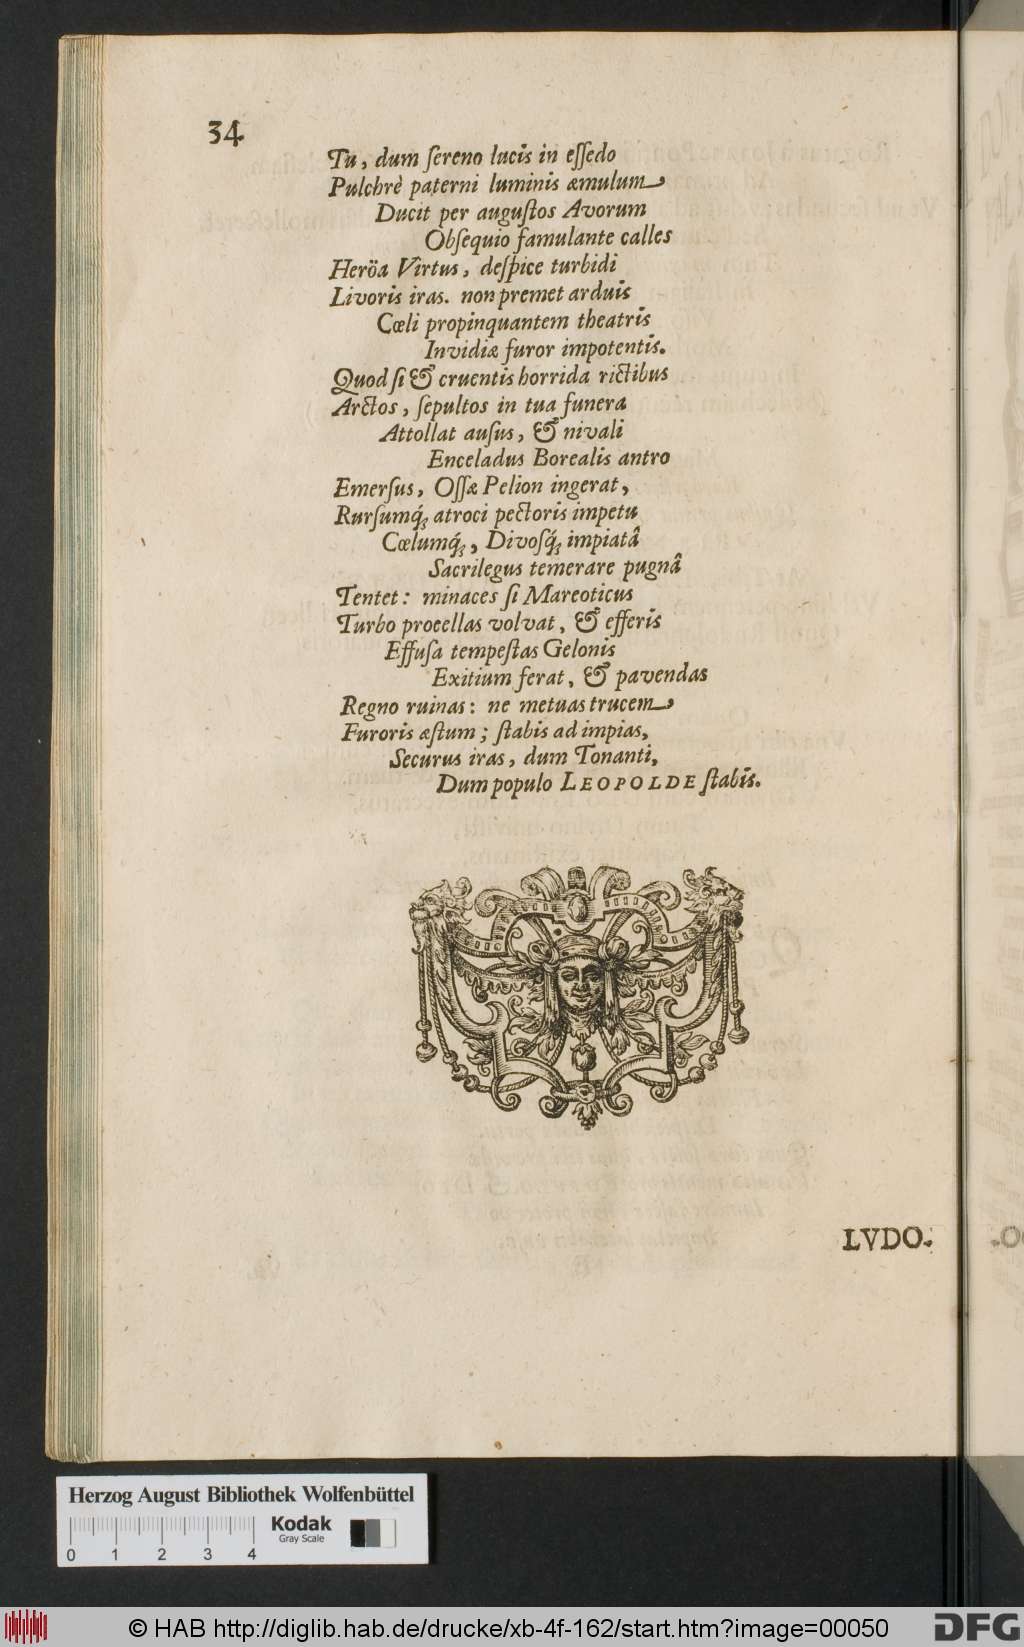 34
Tu, dum ſereno lucis in eſſedo
Pulchrè paterni luminis æmulum
Ducit per auguſtos Avorum
Obſequio famulante calles
Heröa Virtus, deſpice turbidi
Livoris iras. non premet arduis
Cœli propinquantem theatris
Invidiæ furor impotentis.
Quod ſi & cruentis horrida rictibus
Arctos, ſepultos in tua funera
Attollat auſus, & nivali
Enceladus Borealis antro
Emerſus, Oſſæ Pelion ingerat,
Rurſumq́; atroci pectoris impetu
Cœlumq́;, Divoſq́; impiatâ
Sacrilegus temerare pugnâ
Tentet: minaces ſi Mareoticus
Turbo procellas volvat, & efferis
Effuſa tempeſtas Gelonis
Exitium ferat, & pavendas
Regno ruinas: ne metuas trucem
Furoris æſtum; ſtabis ad impias,
Securus iras, dum Tonanti,
Dum populo LEOPOLDE ſtabis.
LVDO.
Herzog August Bibliothek Wolfenbüttel
Kodak
Gray Scale
0 1 2 3 4
© HAB http://diglib.hab.de/drucke/xb-4f-162/start.htm?image=00050
DFG